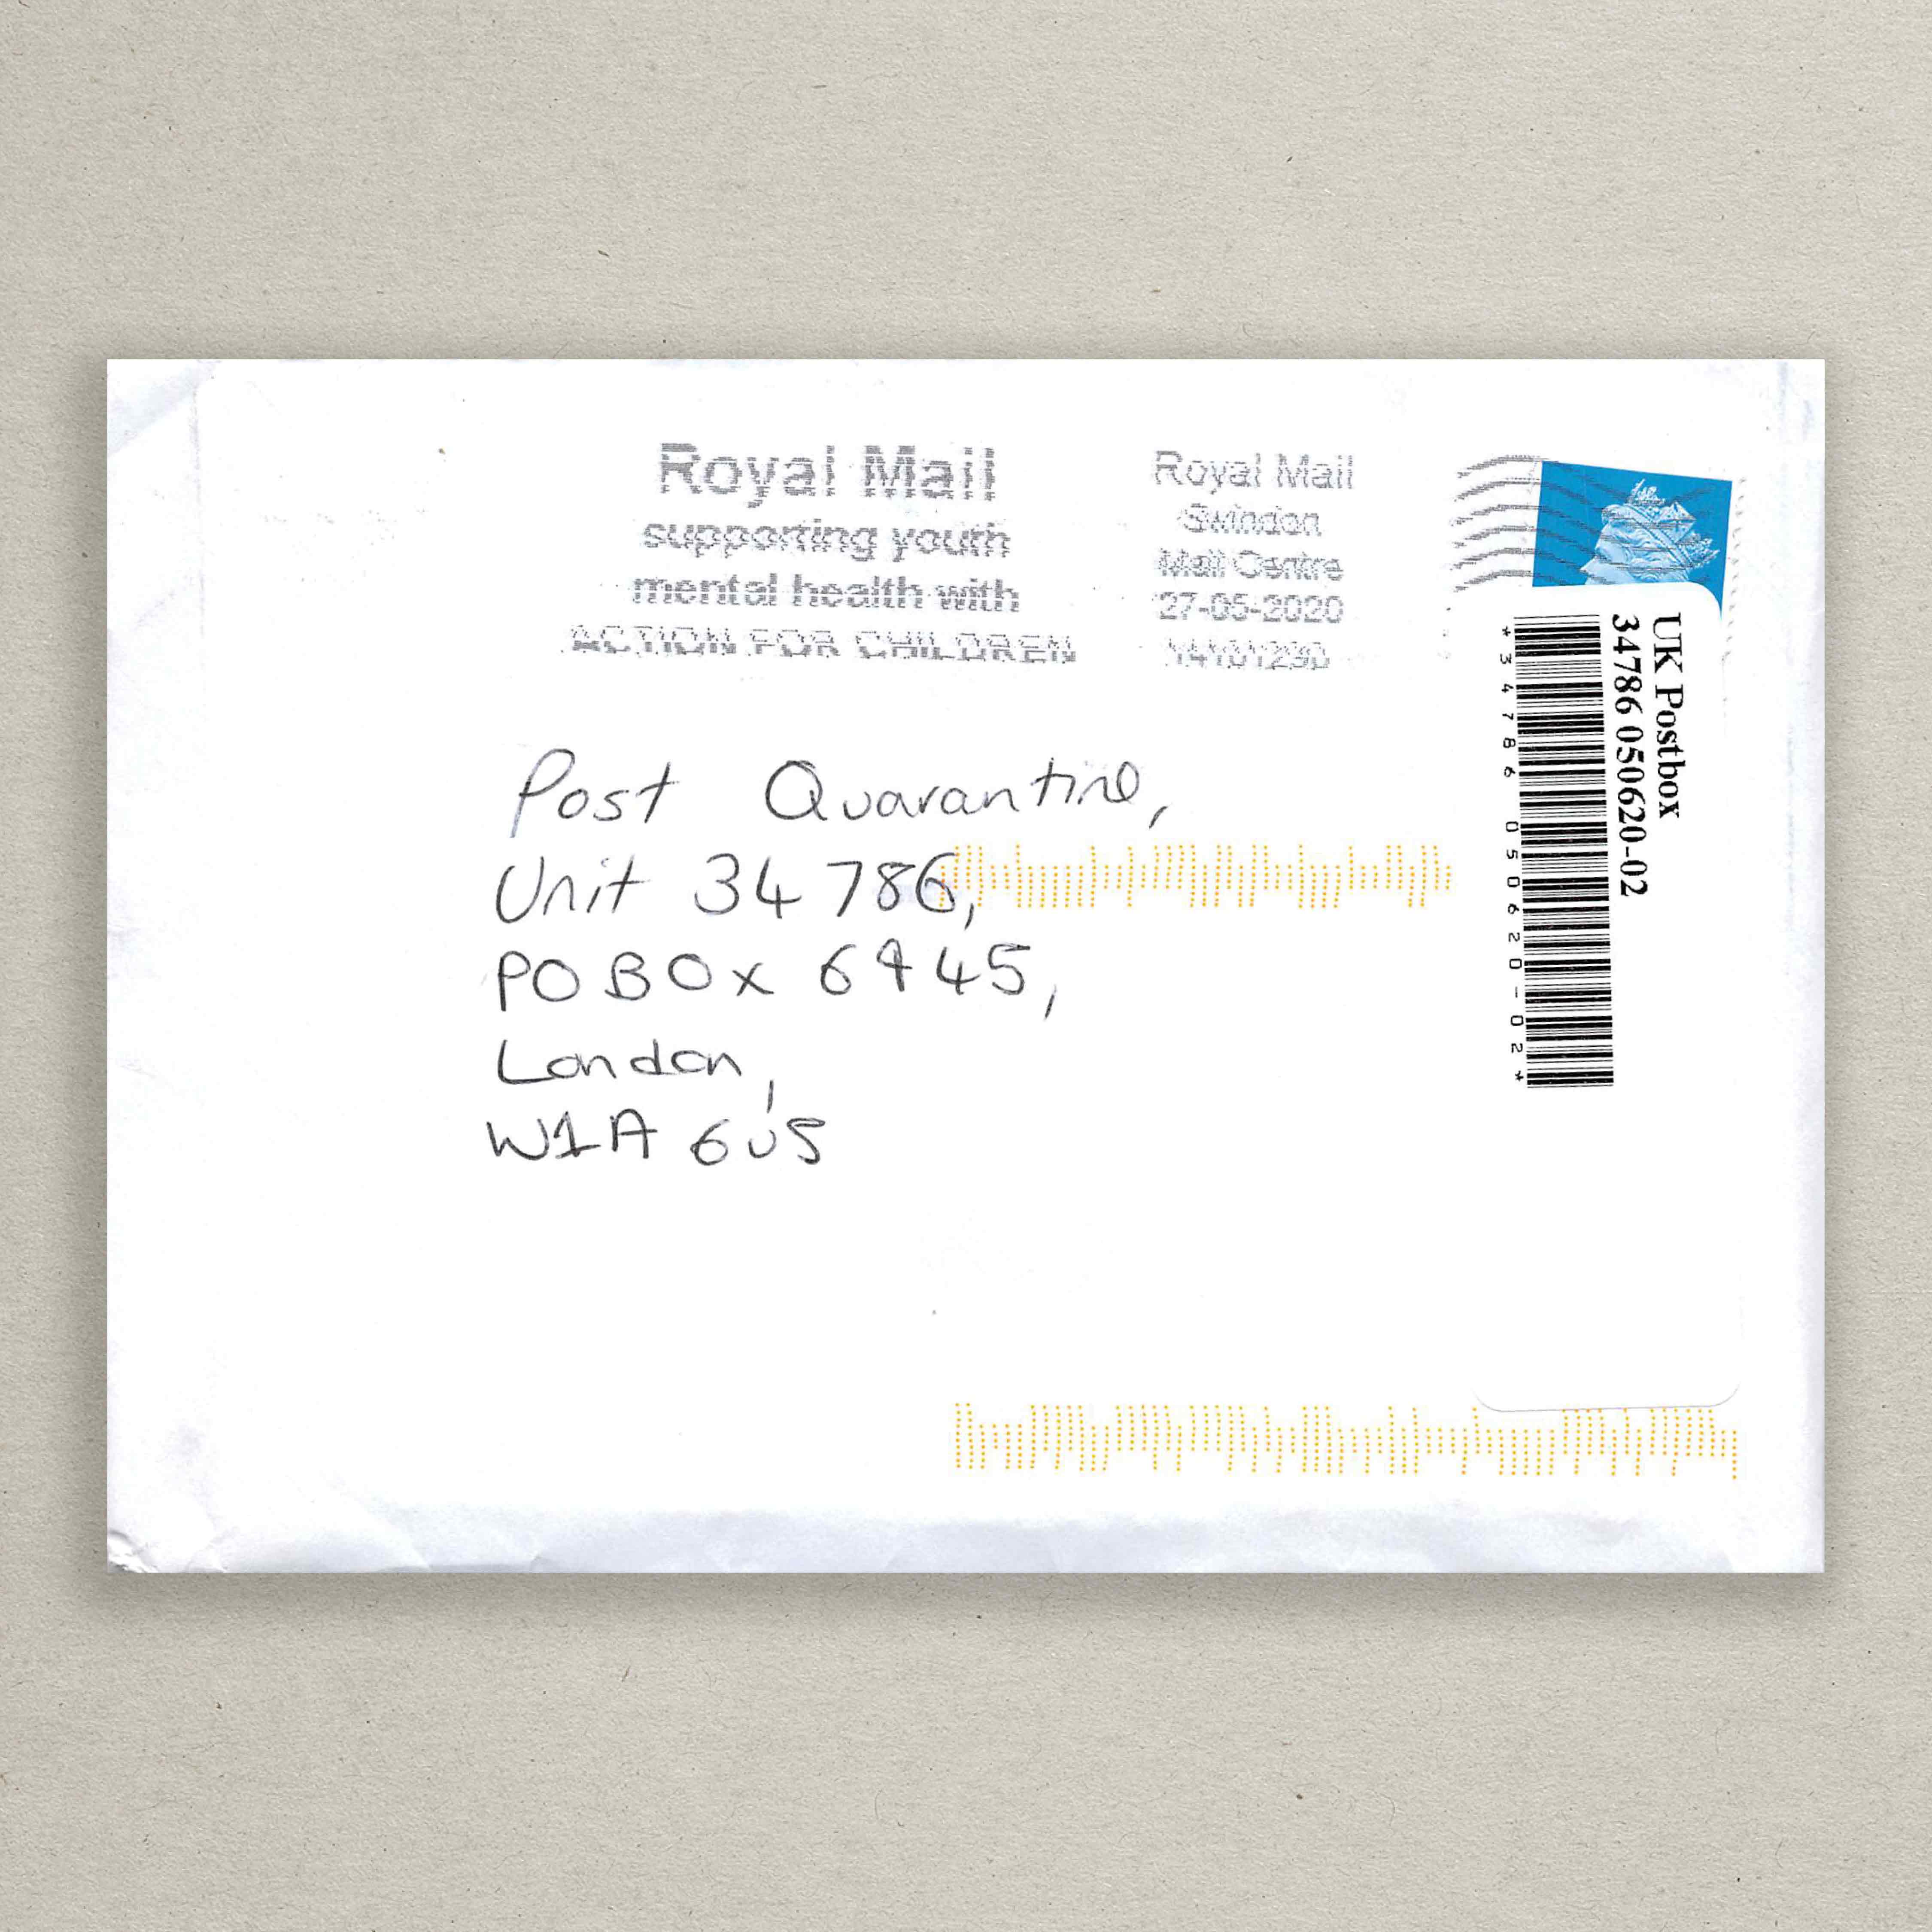 Royal Mail
supporting youth
mental health with
ACTION FOR CHILDREN
Royal Mail
Swindon
Mail Centre
27-05-2020
14101290
UK Postbox
34786 050620-02
*34786 050620-02*
Post Quarantine,
Unit 34786,
PO BOX 6945,
London,
W1A 6US